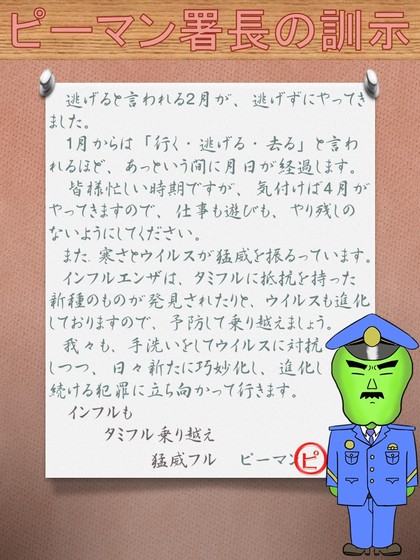 ピーマン署長の訓示
逃げると言われる2月が、逃げずにやってき
ました。
1月からは「行く・逃げる・去る」と言わ
れるほど、あっという間に月日が経過します。
皆様忙しい時期ですが、気付けば4月が
やってきますので、仕事も遊びも、やり残しの
ないようにしてください。
また、寒さとウイルスが猛威を振るっています。
インフルエンザは、タミフルに抵抗を持った
新種のものが発見されたりと、ウイルスも進化
しておりますので、予防して乗り越えましょう。
我々も、手洗いをしてウイルスに対抗
しつつ、日々新たに巧妙化し、進化し
続ける犯罪に立ち向かって行きます。
インフルも
タミフル乗り越え
猛威フル ピーマン ピ